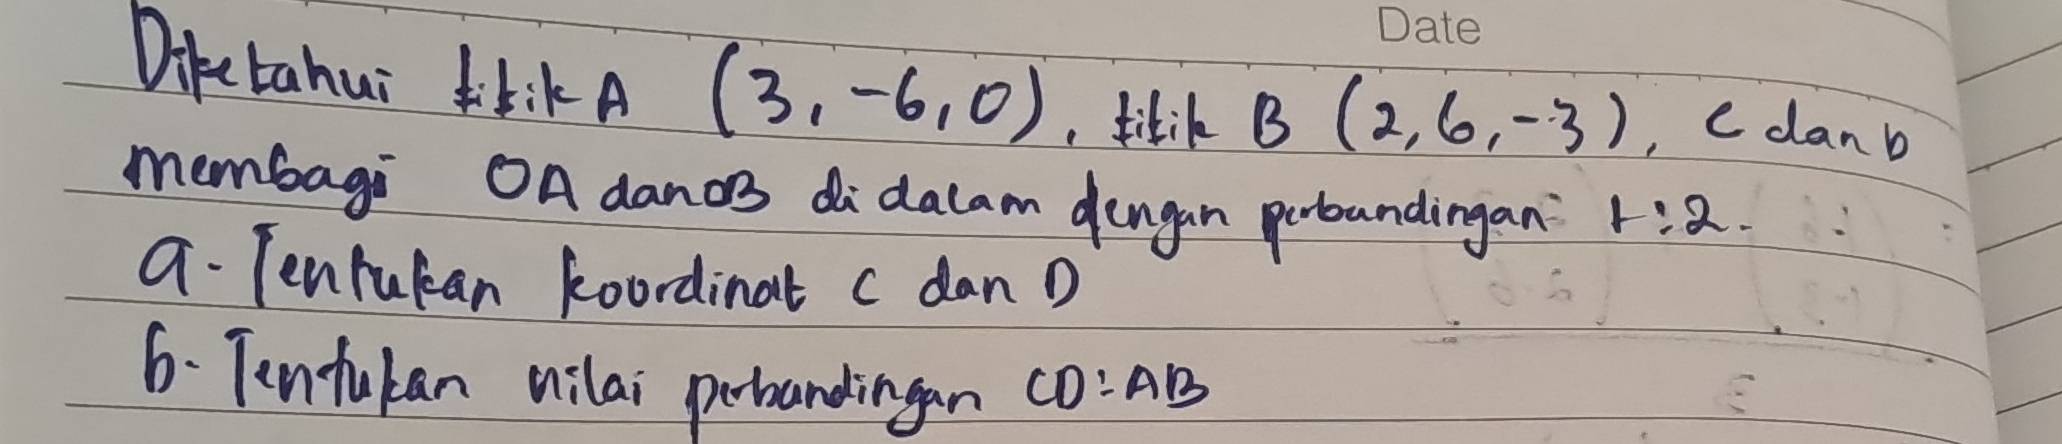 Date
Diketahui titik A (3, -6, 0), titik B (2, 6, -3), C dan D
membagi OA dan OB di dalam dengan perbandingan 1:2.
a. Tentukan koordinat C dan D
b. Tentukan nilai perbandingan CD:AB